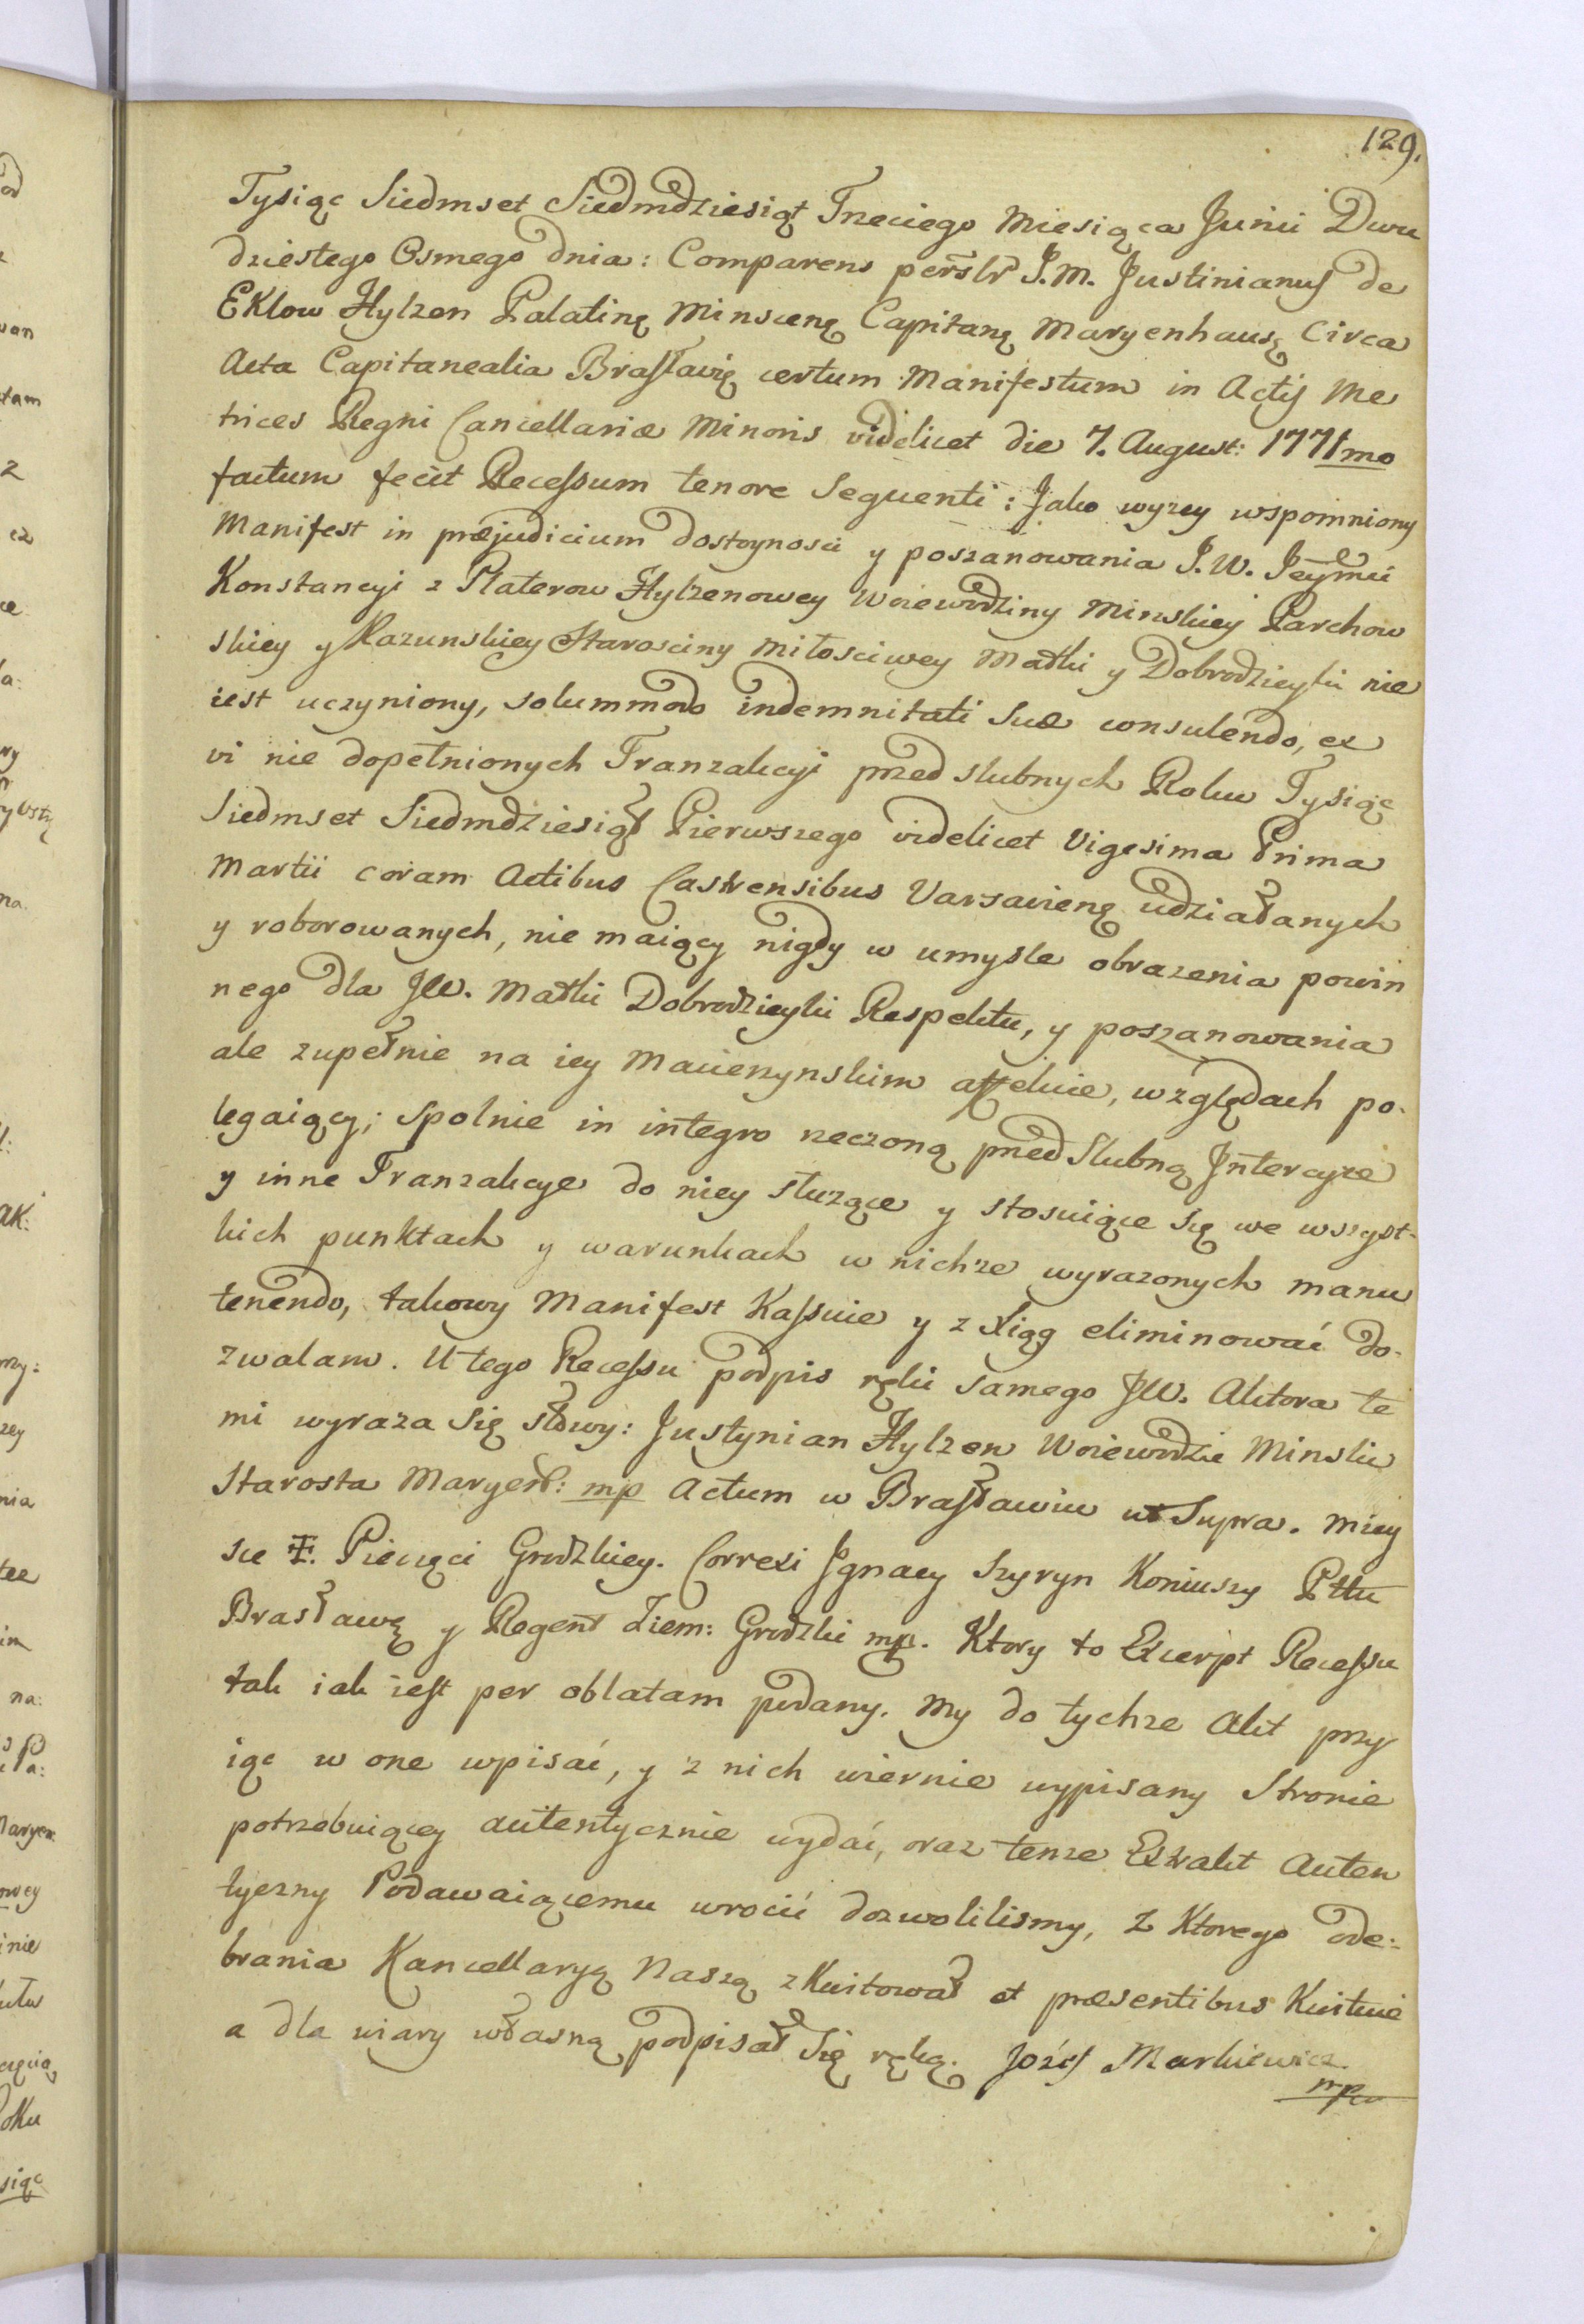 129.
Tysiąc Siedmset Siedmdziesiąt Trzeciego Miesiąca Junii Dwu
dziestego Osmego dnia: Comparens perslr J.M. Justinianus de
Eklow Hylzen Palatinę Minscenę Capitanę Maryenhausę Circa
Acta Capitanealia Brasławię certum Manifestum in Actis Me
trices Regni Cancellariæ Minoris videlicet die 7. August: 1771mo
factum fecit Recessum tenore Sequenti: Jako wyzey wspomniony
Manifest in præjudicium dostoynosci y poszanowania J.W. Jeymci
Konstancyi z Platerow Hylzenowey Woiewodziny Minskiey Parchow
skiey y Kazunskiey Starosciny Miłosciwey Matki y Dobrodzieyki nie
iest uczyniony, solummodo indemnitati Suæ consulendo, ex
vi nie dopełnionych Tranzakcyi przed slubnych Roku Tysiąc
Siedmset Siedmdziesiąt Pierwszego videlicet Vigesima Prima
Martii coram Actibus Castrensibus Varsavienę udziałanych
y roborowanych, nie maiący nigdy w umysle obrazenia powin
nego dla JW. Matki Dobrodzieyki Respektu, y poszanowania
ale zupełnie na iey Macierzynskim affekcie, względach po-
legaiący; spolnie in integro rzeczoną przed Slubną Intercyze
y inne Tranzakcye do niey słuzące y stosuiące się we wszyst-
kich punktach y warunkach w nichze wyrazonych manu
tenendo, takowy Manifest Kassuie y z Xiąg eliminować do-
zwalam. U tego Recessu podpis ręki samego JW. Aktora te
mi wyraza się słowy: Justynian Hylzen Woiewodzic Minski
Starosta Maryenh: mp Actum w Brasławiu ut Supra. Miey
sce Ł. Pieczęci Grodzkiey. Correxi Ignacy Szyryn Koniuszy Pttu
Brasławę y Regent Ziem: Grodzki mp. Ktory to Excerpt Recessu
tak iak iest per oblatam podany. My do tychze Akt przy
iąc w one wpisać, y z nich wiernie wypisany Stronie
potrzebuiącey autentycznie wydać, oraz tenze Extrakt Auten
tyczny Podawaiącemu wrocić dozwolilismy, z Ktorego ode:
brania Kancellaryą Naszą zkwitował et præsentibus Kwituie
a dla wiary własną podpisał Się ręką. Józef Markiewicz
mp